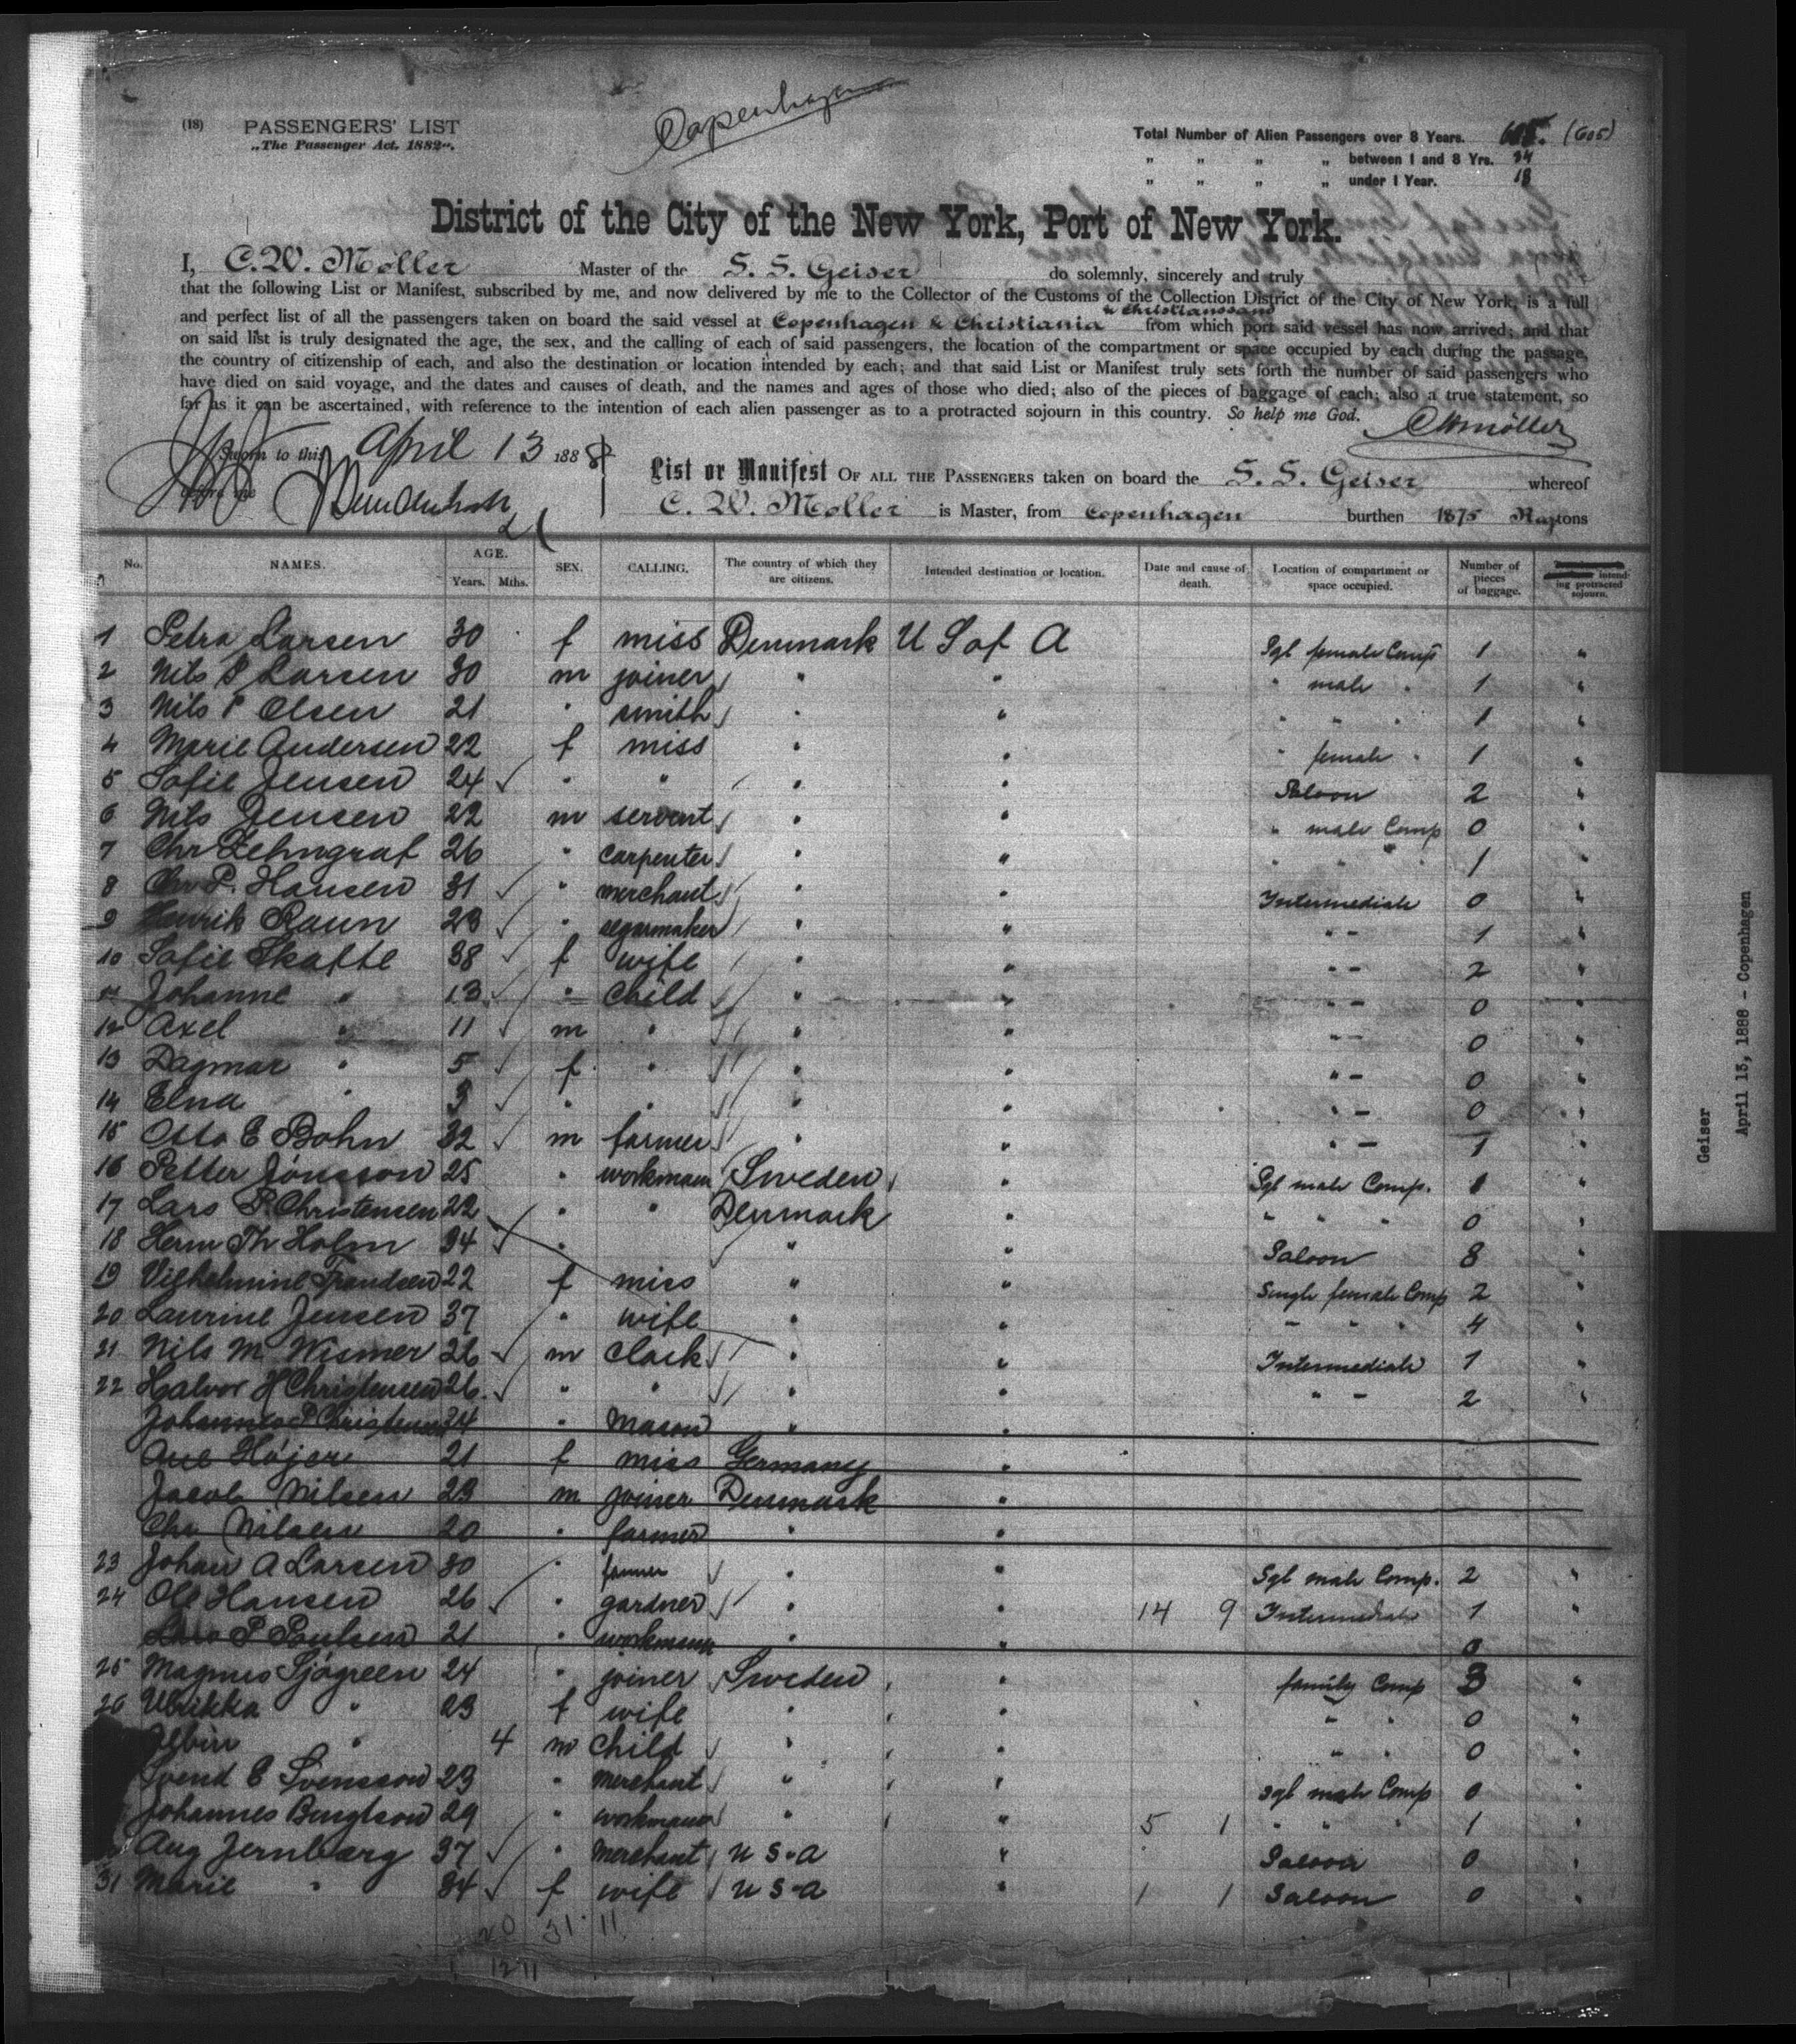 Copenhagen
(18) PASSENGERS' LIST
„The Passenger Act, 1882".
Total Number of Alien Passengers over 8 Years. (605)
„ „ „ „ between 1 and 8 Yrs. 34
„ „ „ „ under 1 Year. 18
District of the City of the New York, Port of New York.
I, C. W. Möller Master of the S. S. Geiser do solemnly, sincerely and truly
that the following List or Manifest, subscribed by me, and now delivered by me to the Collector of the Customs of the Collection District of the City of New York, is a full
and perfect list of all the passengers taken on board the said vessel at Copenhagen & Christiania & Christianssand from which port said vessel has now arrived; and that
on said list is truly designated the age, the sex, and the calling of each of said passengers, the location of the compartment or space occupied by each during the passage,
the country of citizenship of each, and also the destination or location intended by each; and that said List or Manifest truly sets forth the number of said passengers who
have died on said voyage, and the dates and causes of death, and the names and ages of those who died; also of the pieces of baggage of each; also a true statement, so
far as it can be ascertained, with reference to the intention of each alien passenger as to a protracted sojourn in this country. So help me God. CWMöller
Sworn to this April 13 1888
before me
List or Manifest OF ALL THE PASSENGERS taken on board the S. S. Geiser whereof
C. W. Möller is Master, from Copenhagen burthen 1875 tons
No. NAMES. AGE. Years. Mths. SEX. CALLING. The country of which they are citizens. Intended destination or location. Date and cause of death. Location of compartment or space occupied. Number of pieces of baggage. intending protracted sojourn.
1 Petra Larsen 30 f miss Denmark U S of A Sgl female Comp 1 "
2 Nils P Larsen 30 m joiner " " " male " 1 "
3 Nils P Olsen 21 " smith " " " " " 1 "
4 Marie Andersen 22 f miss " " " female " 1 "
5 Sofie Jensen 24 " " " " Saloon 2 "
6 Nils Jensen 22 m servent " " " male Comp 0 "
7 Chr Zehngraf 26 " carpenter " " " " " 1 "
8 Chr P. Hansen 31 " merchant " " Intermediate 0 "
9 Henrik Raun 23 " segarmaker " " " - 1 "
10 Sofie Skafte 38 f wife " " " - 2 "
11 Johanne " 13 " Child " " " - 0 "
12 Axel " 11 m " " " " - 0 "
13 Dagmar " 5 f " " " " - 0 "
14 Elna " 3 " " " " " - 0 "
15 Otto E Bohn 32 m farmer " " " - 1 "
16 Petter Jönsson 25 " workmann Sweden " Sgl male Comp. 1 "
17 Lars P. Christensen 22 " " Denmark " " " " 0 "
18 Herm Th Holm 34 " " " Saloon 8 "
19 Vilhelmine Frandsen 22 f miss " " Single female Comp 2 "
20 Laurine Jensen 37 " wife " " - " " 4 "
21 Nils M Wismer 26 m Clark " " Intermediate 1 "
22 Halvor H Christensen 26 " " " " " - 2 "
Johannes P Christensen 24 " Mason " "
Ane Höjer 21 f miss Germany "
Jacob Nilsen 23 m joiner Denmark "
Chr Nilsen 20 " farmer " "
23 Johan A Larsen 30 " farmer " " Sgl male Comp. 2 "
24 Ole Hansen 26 " gardner " " 14 9 Intermediate 1 "
Lars P Poulsen 21 " workmann " " 0
25 Magnus Sjögreen 24 " joiner Sweden " family Comp 3 "
26 Ulrikka " 23 f wife " " " " 0 "
Albin " 4 m Child " " " " 0 "
Svend E Svensson 23 " merchant " " Sgl male Comp 0 "
Johannes Bengtson 29 " workmann " " 5 1 " " " 1 "
Aug Jernberg 37 " merchant U S a " Saloon 0 "
31 Marie " 34 f wife U S a " 1 1 Saloon 0 "
20 31 11
12 11
Geiser
April 13, 1888 - Copenhagen